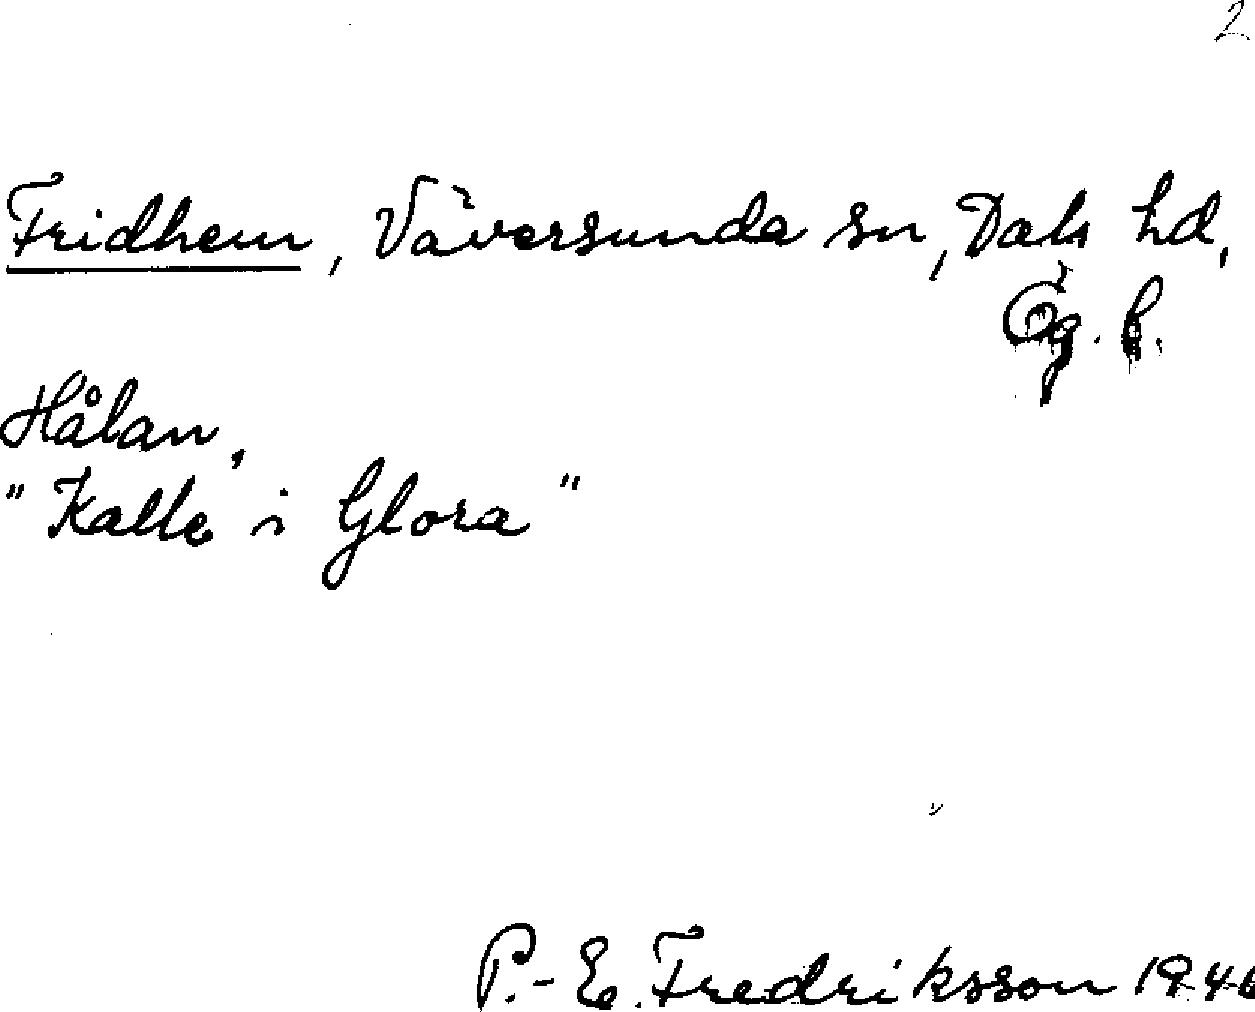 2
Fridhem, Väversunda sn, Dals hd,
Ög. l.
Hålan,
"Kalle i Glora"
P.-E. Fredriksson 1946